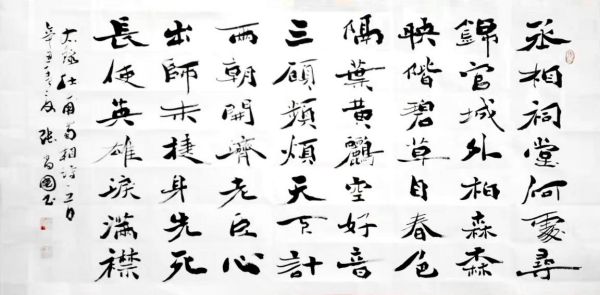 丞相祠堂何處尋
錦官城外柏森森
映階碧草自春色
隔葉黃鸝空好音
三顧頻煩天下計
兩朝開濟老臣心
出師未捷身先死
長使英雄淚滿襟
大唐杜甫蜀相詩
辛丑 夏 張昌國書